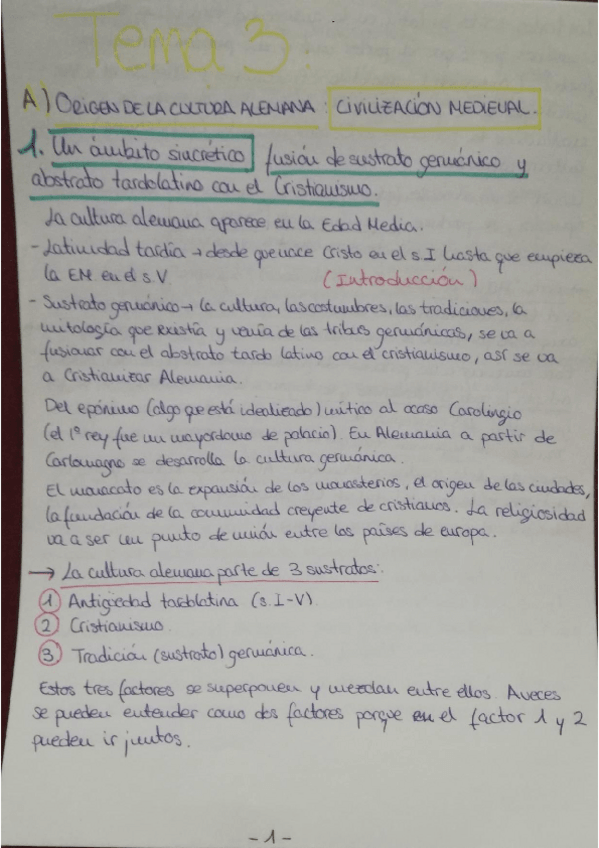 Tema 3.
A) ORIGEN DE LA CULTURA ALEMANA: CIVILIZACIÓN MEDIEVAL.
1. Un ámbito sincrético fusión de sustrato germánico y
abstrato tardolatino con el Cristianismo.
La cultura alemana aparece en la Edad Media.
- Latinidad tardía → desde que nace Cristo en el s I hasta que empieza
la EM en el s V.
(Introducción)
- Sustrato germánico → la cultura, las costumbres, las tradiciones, la
mitología que existía y venía de las tribus germánicas, se va a
fusionar con el abstrato tardo latino con el cristianismo, así se va
a Cristianizar Alemania.
Del epónimo (algo que está idealizado) mítico al ocaso Carolingio
(el 1º rey fue un mayordomo de palacio). En Alemania a partir de
Carlomagno se desarrolla la cultura germánica.
El monacato es la expansión de los monasterios, el origen de las ciudades,
la fundación de la comunidad creyente de cristianos. La religiosidad
va a ser un punto de unión entre los países de europa.
→ La cultura alemana parte de 3 sustratos:
1 Antigüedad tardolatina (s. I-V)
2 Cristianismo.
3 Tradición (sustrato) germánica.
Estos tres factores se superponen y mezclan entre ellos. Aveces
se pueden entender como dos factores porque en el factor 1 y 2
pueden ir juntos.
-1-